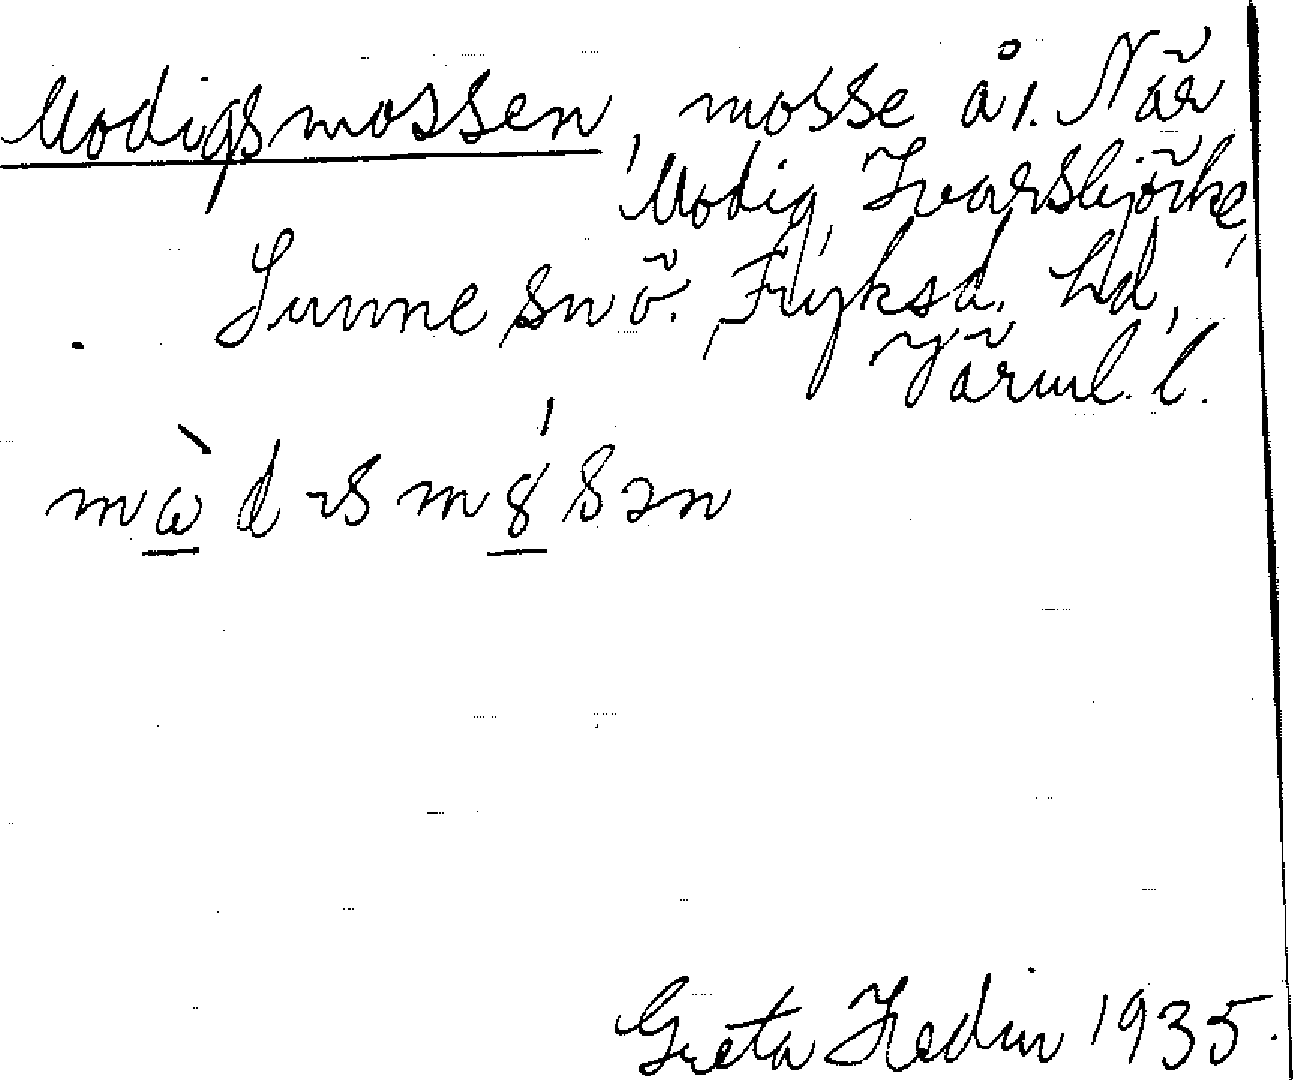 Modigsmossen, mosse å 1. När
Modig, Ivarsbjörke,
Sunne sn ö. Fryksd. hd,
Värml. l.
Greta Hedin 1935.